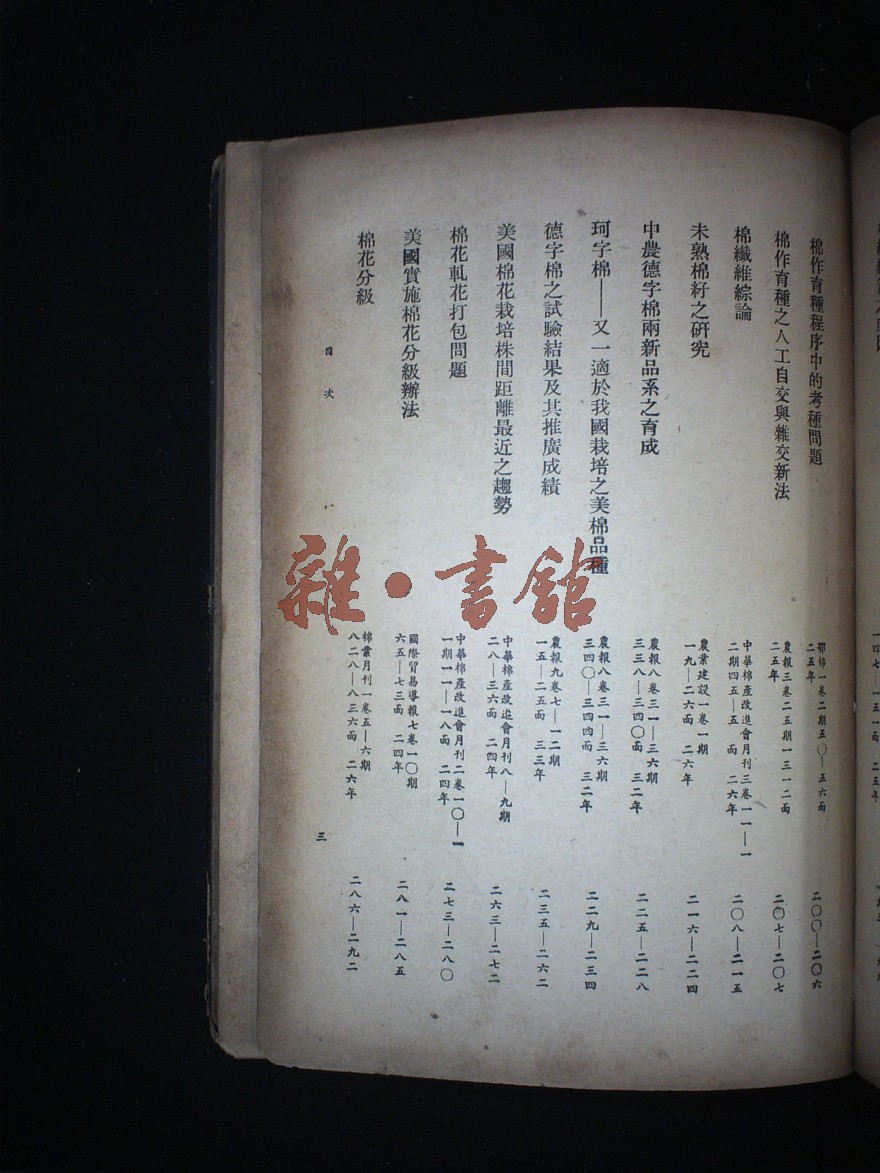 棉作育種程序中的考種問題
鄂棉一卷二期五〇—五六面
二五年
二〇〇—二〇六
棉作育種之人工自交與雜交新法
農報三卷二五期一三一二面
二五年
二〇七—二〇七
棉纖維綜論
中華棉產改進會月刊三卷一一—一
二期四五—五一面 二六年
二〇八—二一五
未熟棉籽之研究
農業建設一卷一期
一九—二六面 二六年
二一六—二二四
中農德字棉兩新品系之育成
農報八卷三一—三六期
三三八—三四〇面 三二年
二二五—二二八
珂字棉——又一適於我國栽培之美棉品種
農報八卷三一—三六期
三四〇—三四四面 三二年
二二九—二三四
德字棉之試驗結果及其推廣成績
農報九卷七—一二期
一五—二五面 三三年
二三五—二六二
美國棉花栽培株間距離最近之趨勢
中華棉產改進會月刊八—九期
二八—三六面 二四年
二六三—二七二
棉花軋花打包問題
中華棉產改進會月刊二卷一〇—一
一期一一—一八面 二四年
二七三—二八〇
美國實施棉花分級辦法
國際貿易導報七卷一〇期
六五—七三面 二四年
二八一—二八五
棉花分級
棉業月刊一卷五—六期
八二八—八三六面 二六年
二八六—二九二
目次
三
雜·書館